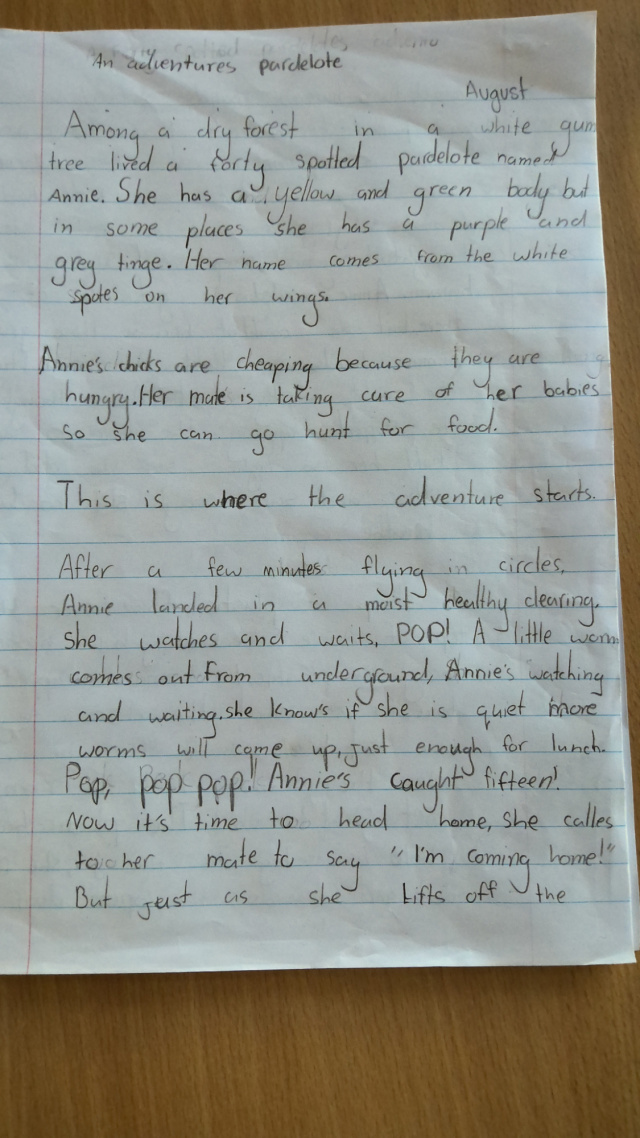 An adventures pardelote
August
Among a dry forest in a white gum
tree lived a forty spotted pardelote named
Annie. She has a yellow and green body but
in some places she has a purple and
grey tinge. Her name comes from the white
spotes on her wings.
Annie's chicks are cheaping because they are
hungry. Her mate is taking care of her babies
so she can go hunt for food.
This is where the adventure starts.
After a few minutes flying in circles,
Annie landed in a moist healthy clearing.
she watches and waits, POP! A little worm
comes out from underground, Annie's watching
and waiting. she know's if she is quiet more
worms will come up, just enough for lunch.
Pop, pop pop! Annie's caught fifteen!
Now it's time to head home, she calles
to her mate to say "I'm coming home!"
But just as she lifts off the